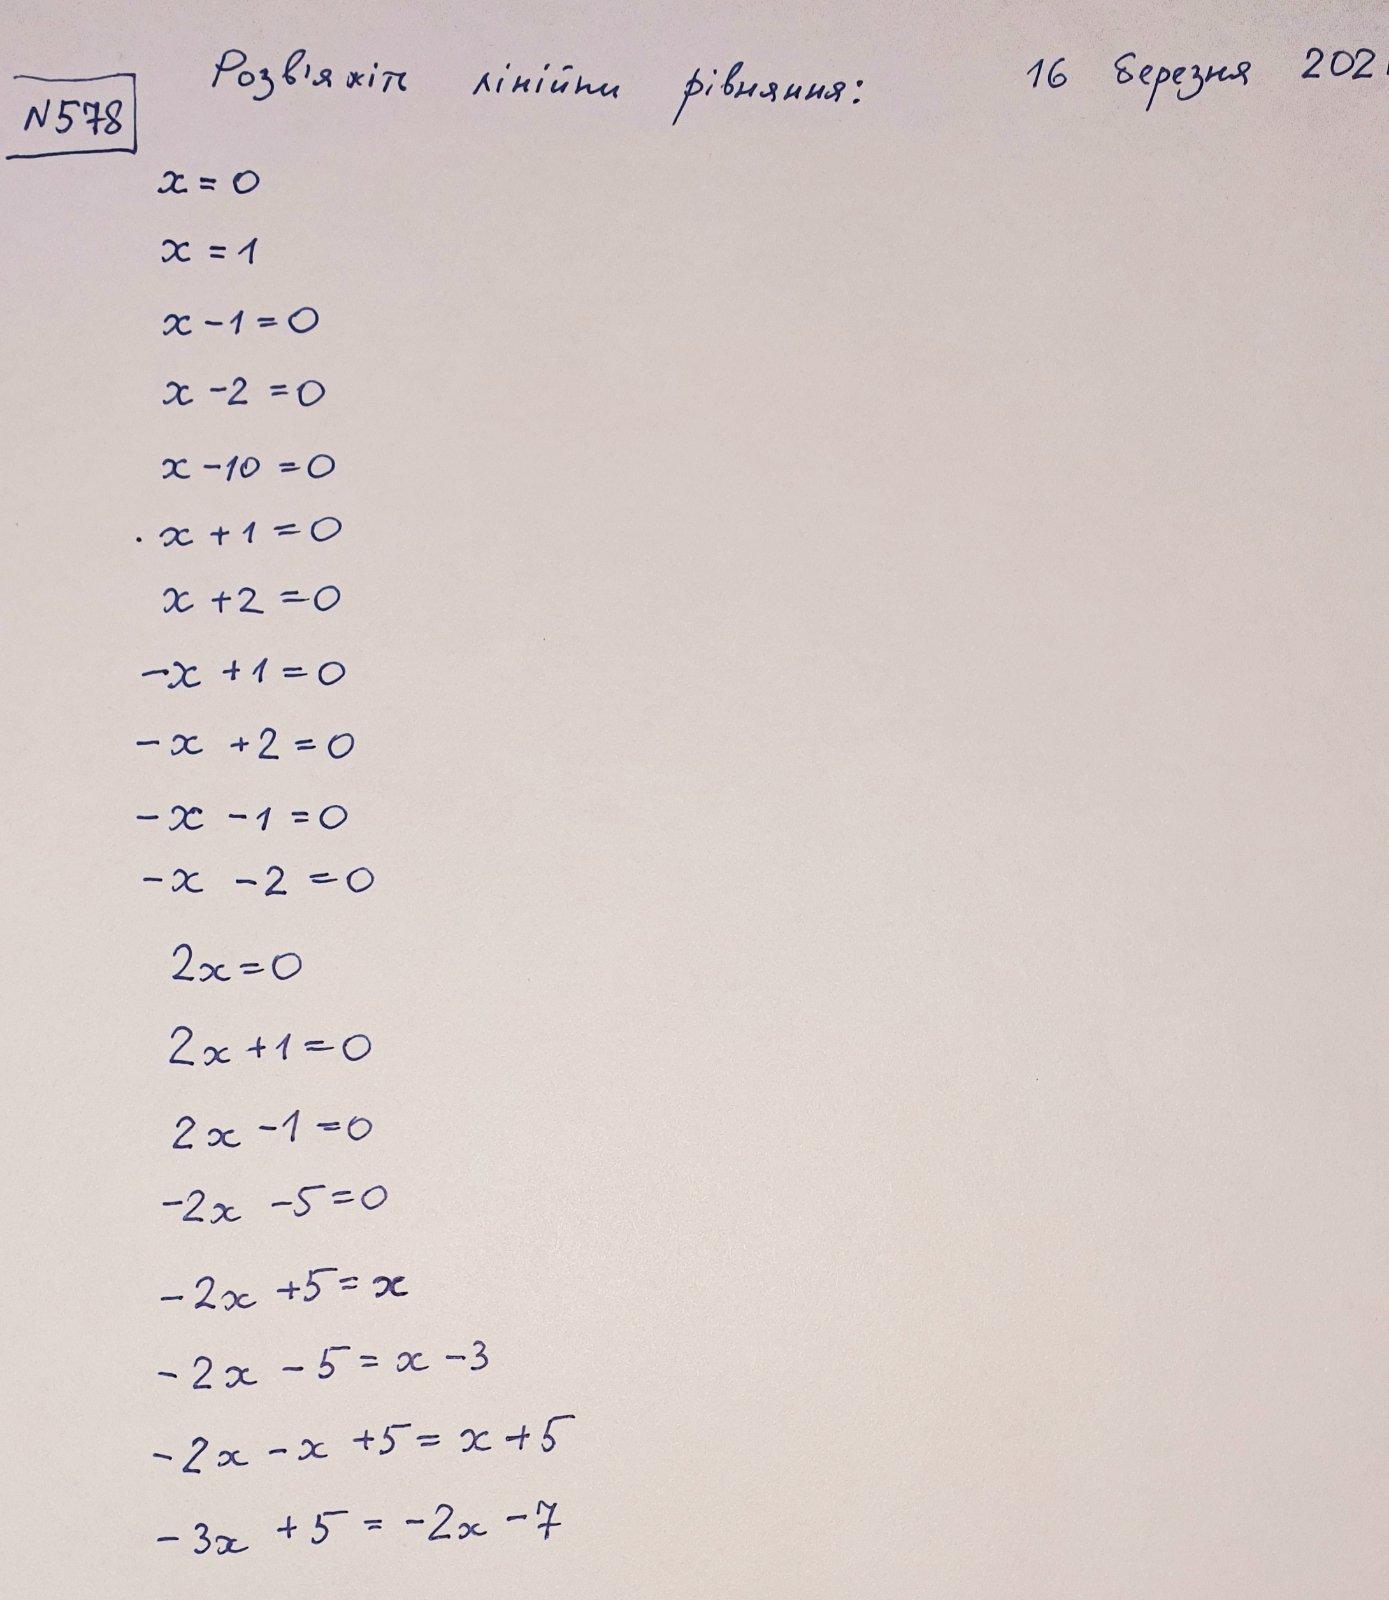 Розв'яжіть лінійни рівняння: 16 березня 202
N578
x = 0
x = 1
x - 1 = 0
x - 2 = 0
x - 10 = 0
. x + 1 = 0
x + 2 = 0
-x + 1 = 0
-x + 2 = 0
-x - 1 = 0
-x - 2 = 0
2x = 0
2x + 1 = 0
2x - 1 = 0
-2x - 5 = 0
-2x + 5 = x
-2x - 5 = x - 3
-2x - x + 5 = x + 5
-3x + 5 = -2x - 7